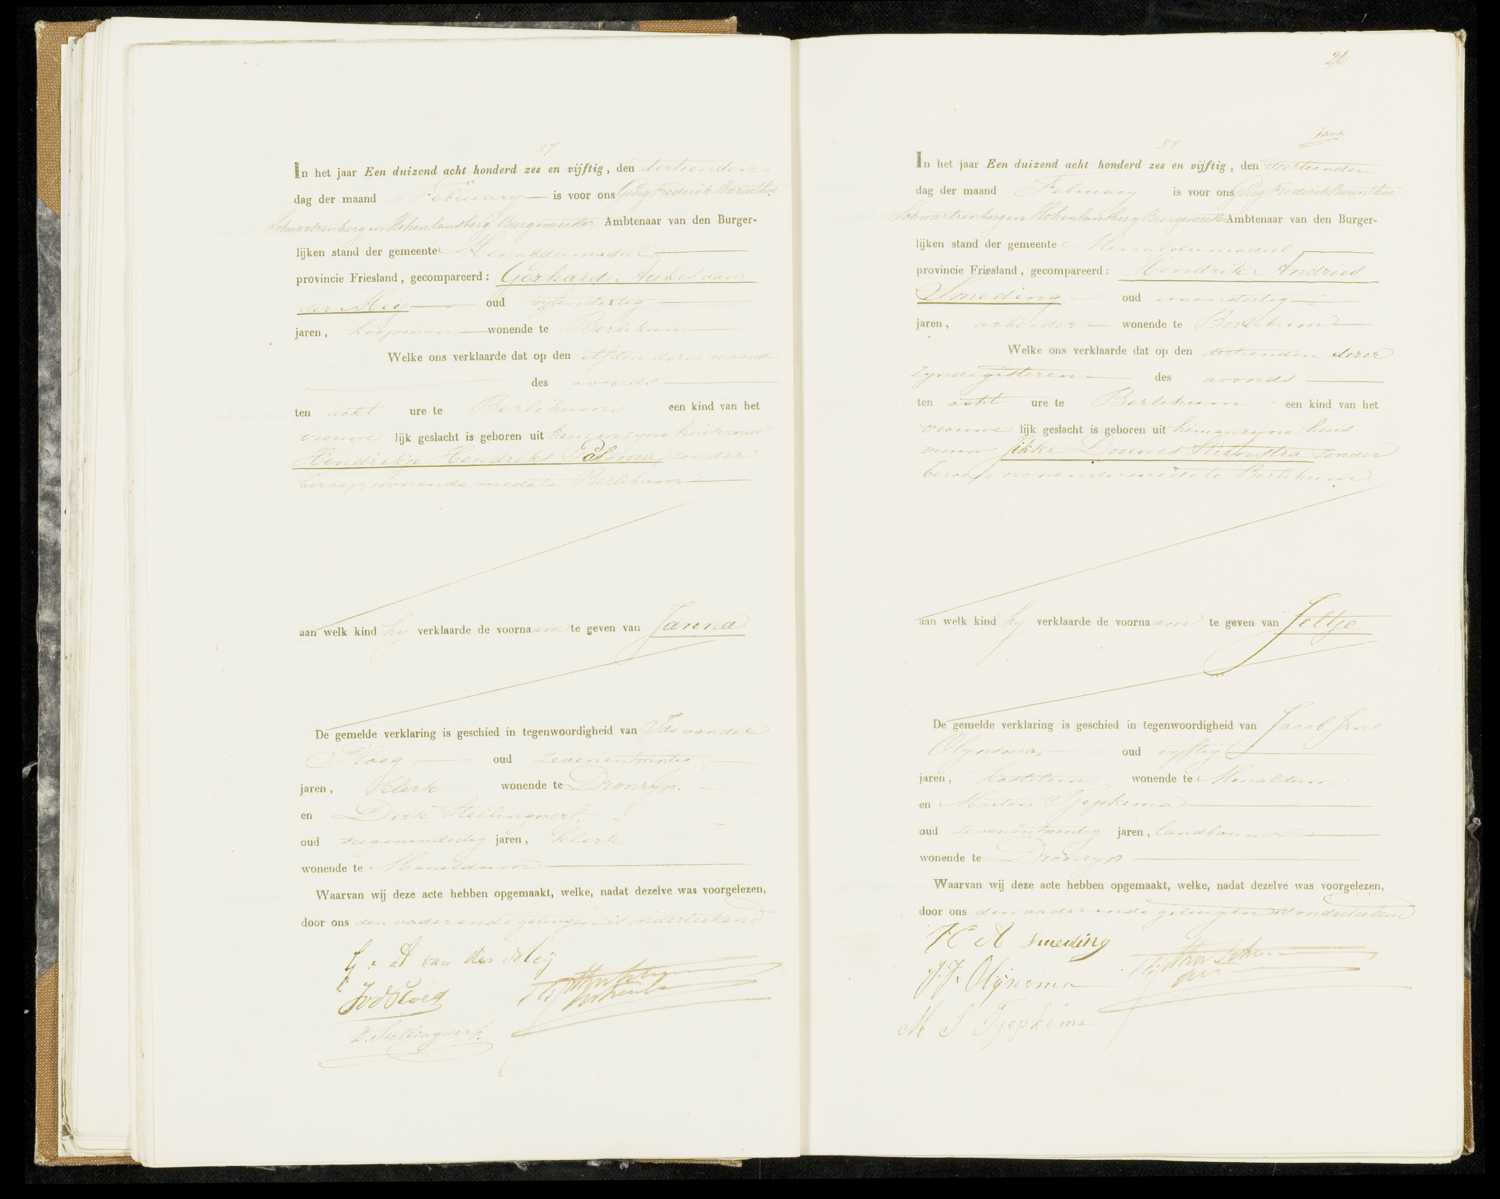 37
In het jaar Een duizend acht honderd zes en vijftig, den dertienden
dag der maand February is voor ons Georg Frederik Baron thoe
Schwartzenberg en Hohenlansberg Burgemeester Ambtenaar van den Burger-
lijken stand der gemeente Menaldumadeel
provincie Friesland, gecompareerd: Gerhard van
der Meij oud vijfendertig
jaren, koopman wonende te Berlikum
Welke ons verklaarde dat op den elfden dezer maand
des avonds
ten acht ure te Berlikum een kind van het
vrouwe lijk geslacht is geboren uit hem en zyne huisvrouw
Hendrika Hendriks zonder
beroep, wonende mede te Berlikum
aan welk kind hy verklaarde de voornaam te geven van Janna
De gemelde verklaring is geschied in tegenwoordigheid van van der
Ploeg oud zevenentwintig
jaren, Klerk wonende te Dronryp
en Dirk Hellingwerf
oud jaren, klerk
wonende te Menaldum
Waarvan wij deze acte hebben opgemaakt, welke, nadat dezelve was voorgelezen,
door ons den vader en de getuigen is ondertekend
G. A van der Meij
vd Ploeg
D. Hellingwerf
26
In het jaar Een duizend acht honderd zes en vijftig, den dertienden
dag der maand February is voor ons Georg Frederik Baron thoe
Schwartzenberg en Hohenlansberg Burgemeester Ambtenaar van den Burger-
lijken stand der gemeente Menaldumadeel
provincie Friesland, gecompareerd: Hendrik Andries
Smeding oud
jaren, arbeider wonende te Berlikum
Welke ons verklaarde dat op den dezer
zynde gisteren des avonds
ten acht ure te Berlikum een kind van het
vrouwe lijk geslacht is geboren uit hem en zyne huis
vrouw Jikke Douwes zonder
beroep wonende mede te Berlikum
aan welk kind hy verklaarde de voornaam te geven van Jeltje
De gemelde verklaring is geschied in tegenwoordigheid van Jacob
Olijnsma oud vyftig
jaren, kastelein wonende te Menaldum
en Tjepkema
oud zevenentwintig jaren, landbouwer
wonende te Dronryp
Waarvan wij deze acte hebben opgemaakt, welke, nadat dezelve was voorgelezen,
door ons den vader en de getuigen is ondertekend
H A Smeding
J. J. Olijnsma
M S Tjepkema